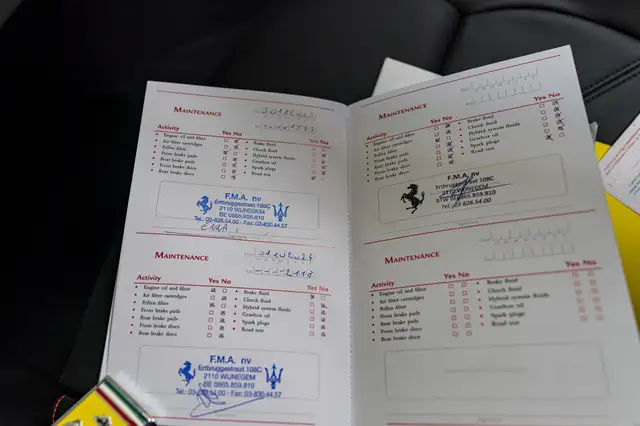 MAINTENANCE
Activity Yes No
Engine oil and filter
Air filter cartridges
Pollen filter
Front brake pads
Rear brake pads
Front brake discs
Rear brake discs
Brake fluid
Clutch fluid
Hybrid system fluids
Gearbox oil
Spark plugs
Road test
F.M.A. nv
Ertbruggestraat 108C
2110 WIJNEGEM
BE 0865.859.810
Tel.: 03-828.54.00 - Fax: 03-830.44.57
MAINTENANCE
Activity Yes No
Engine oil and filter
Air filter cartridges
Pollen filter
Front brake pads
Rear brake pads
Front brake discs
Rear brake discs
Yes No
Brake fluid
Clutch fluid
Hybrid system fluids
Gearbox oil
Spark plugs
Road test
F.M.A. nv
Ertbruggestraat 108C
2110 WIJNEGEM
BE 0865.859.810
Tel.: 03-828.54.00 - Fax: 03-830.44.57
MAINTENANCE
Activity Yes No
Engine oil and filter
Air filter cartridges
Pollen filter
Front brake pads
Rear brake pads
Front brake discs
Rear brake discs
Yes No
Brake fluid
Clutch fluid
Hybrid system fluids
Gearbox oil
Spark plugs
Road test
Ertbruggestraat 108C
2110 WIJNEGEM
BE 0865.859.810
Tel.: 03-828.54.00
MAINTENANCE
Activity Yes No
Engine oil and filter
Air filter cartridges
Pollen filter
Front brake pads
Rear brake pads
Front brake discs
Rear brake discs
Yes No
Brake fluid
Clutch fluid
Hybrid system fluids
Gearbox oil
Spark plugs
Road test